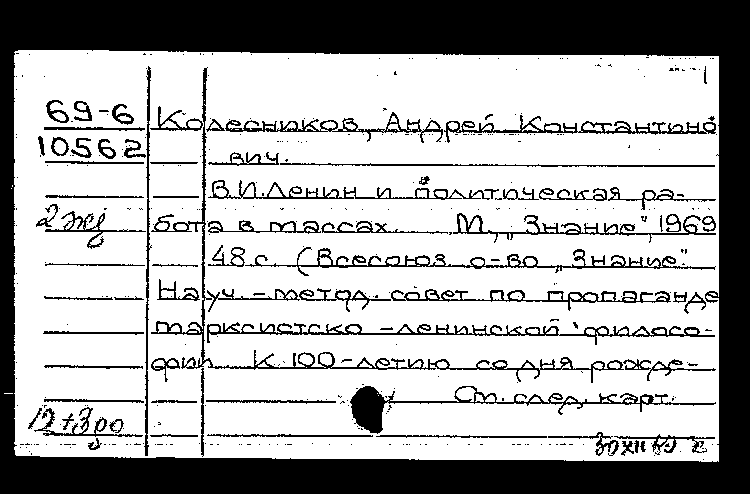 69-6 Колесников, Андрей Константино
10562 вич.
В.И.Ленин и политическая ра-
2 бота в массах. М., „Знание", 1969
48 с. (Всесоюз. о-во „Знание".
Науч.-метод. совет по пропаганде
марксистско-ленинской филосо-
фии К 100-летию со дня рожде-
См. след. карт.
12+3
30 XII 69